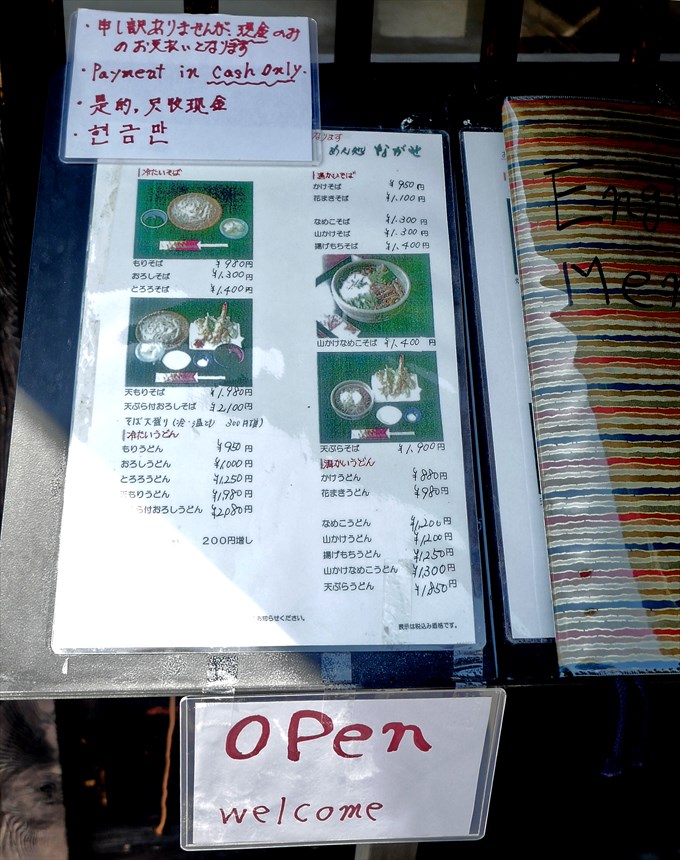 ・申し訳ありませんが、現金のみ
のお支払いとなります
・Payment in Cash Only.
・是的，只收现金
・현금만
なります
めん処 ながせ
冷たいそば
もりそば ¥980円
おろしそば ¥1,300円
とろろそば ¥1,400円
天もりそば ¥1,980円
天ぷら付おろしそば ¥2,100円
そば大盛り(冷・温とも 300円増)
冷たいうどん
もりうどん ¥950円
おろしうどん ¥1,000円
とろろうどん ¥1,250円
もりうどん ¥1,980円
付おろしうどん ¥2,080円
200円増し
お知らせください。
温かいそば
かけそば ¥950円
花まきそば ¥1,100円
なめこそば ¥1,300円
山かけそば ¥1,300円
揚げもちそば ¥1,400円
山かけなめこそば ¥1,400円
天ぷらそば ¥1,900円
温かいうどん
かけうどん ¥880円
花まきうどん ¥980円
なめこうどん ¥1,200円
山かけうどん ¥1,200円
揚げもちうどん ¥1,250円
山かけなめこうどん ¥1,300円
天ぷらうどん ¥1,850円
表示は税込み価格です。
Eng
Men
OPen
welcome